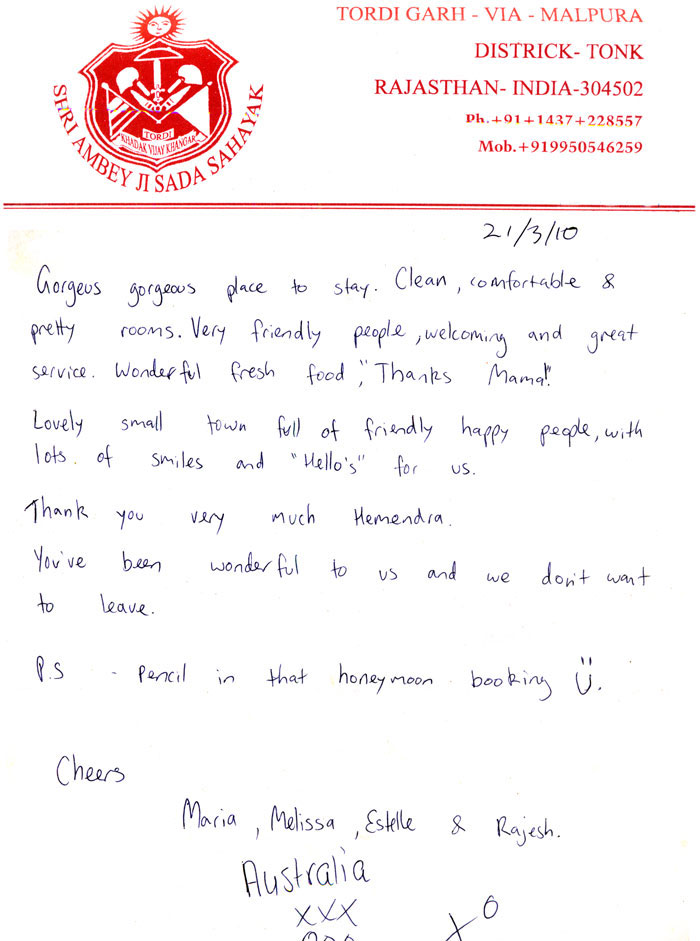 TORDI GARH - VIA - MALPURA
DISTRICK- TONK
RAJASTHAN- INDIA-304502
Ph.+91+1437+228557
Mob.+919950546259
SHRI AMBEY JI SADA SAHAYAK
TORDI
KHADAK VIJAY KHANGAR
21/3/10
Gorgeus gorgeous place to stay. Clean, comfortable &
pretty rooms. Very friendly people, welcoming and great
service. Wonderful fresh food, "Thanks Mama!"
Lovely small town full of friendly happy people, with
lots of smiles and "Hello's" for us.
Thank you very much Hemendra.
You've been wonderful to us and we don't want
to leave.
P.S - Pencil in that honeymoon booking Ü.
Cheers
Maria, Melissa, Estelle & Rajesh.
Australia
XXX